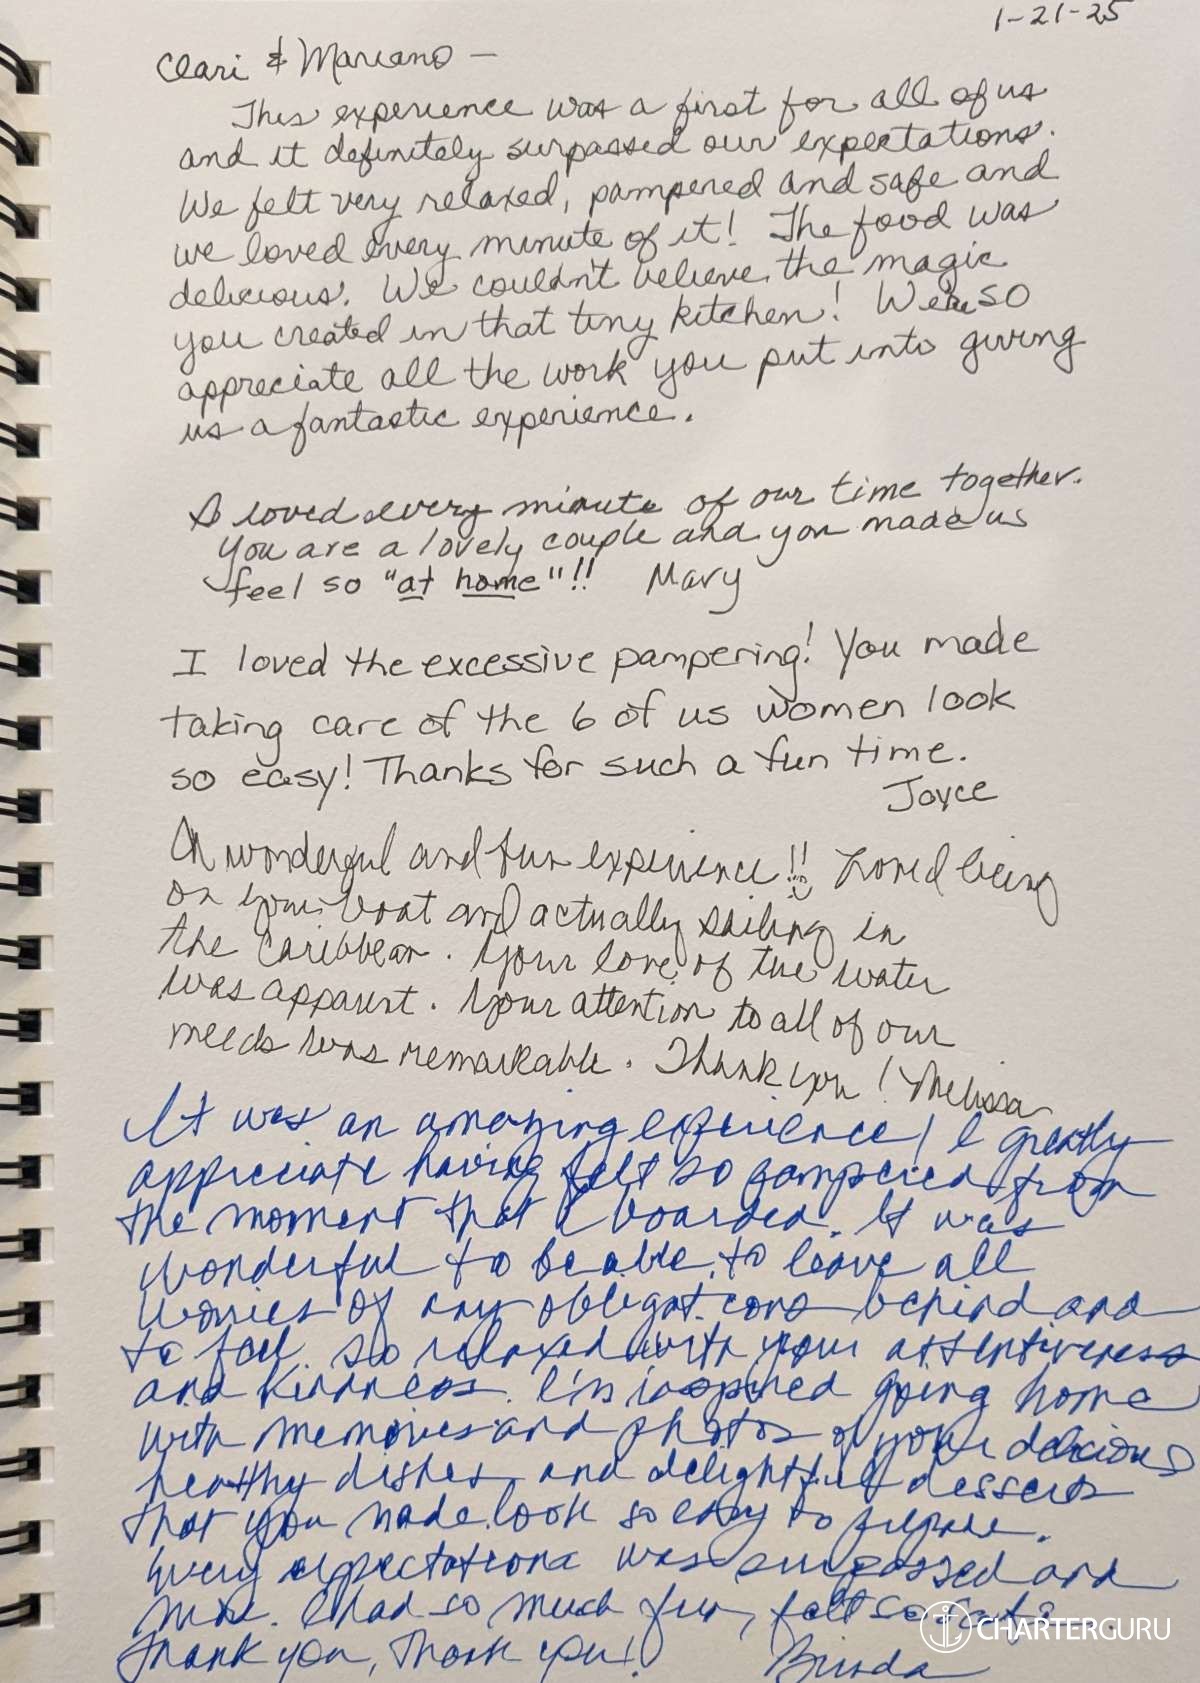 1-21-25
Clari & Mariano —
This experience was a first for all of us
and it definitely surpassed our expectations.
We felt very relaxed, pampered and safe and
we loved every minute of it! The food was
delicious. We couldn't believe the magic
you created in that tiny kitchen! We so
appreciate all the work you put into giving
us a fantastic experience.
I loved every minute of our time together.
You are a lovely couple and you made us
feel so "at home"!! Mary
I loved the excessive pampering! You made
taking care of the 6 of us women look
so easy! Thanks for such a fun time.
Joyce
A wonderful and fun experience!! Loved being
on your boat and actually sailing in
the Caribbean. Your love of the water
was apparent. Your attention to all of our
needs was remarkable. Thank you! Melissa
It was an amazing experience! I greatly
appreciate having felt so pampered from
the moment that I boarded. It was
wonderful to be able to leave all
worries of any obligations behind and
to feel so relaxed with your attentiveness
and kindness. I'm inspired going home
with memories and photos of your delicious
healthy dishes and delightful desserts
that you made look so easy to prepare.
Every expectation was surpassed and
more. I had so much fun, felt so safe.
Thank you, Thank you!
CHARTERGURU